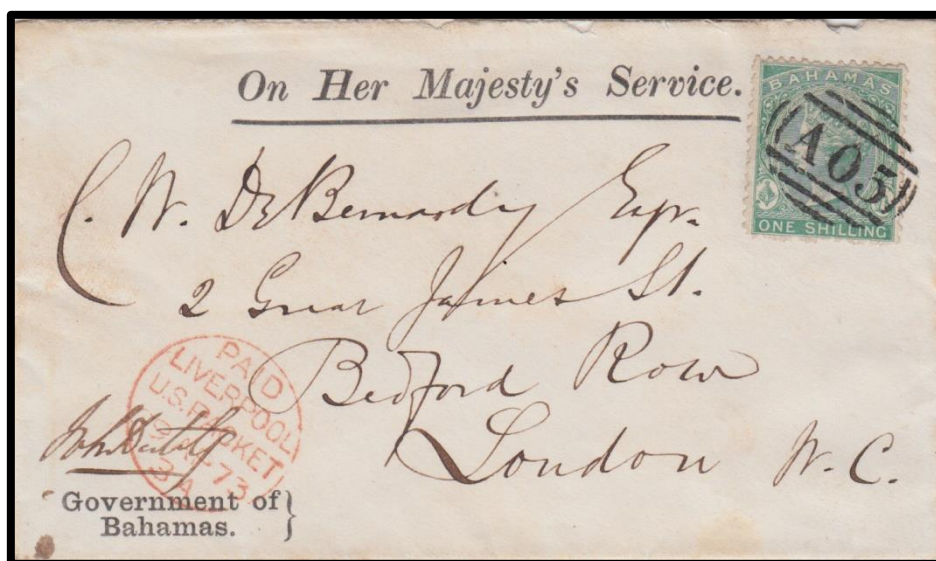 On Her Majesty's Service.
BAHAMAS
A05
ONE SHILLING
C. W. De Bernardy Esqr.
2 Great James St.
Bedford Row
London W. C.
PAID
LIVERPOOL
U.S. PACKET
73
3 A
Government of
Bahamas.